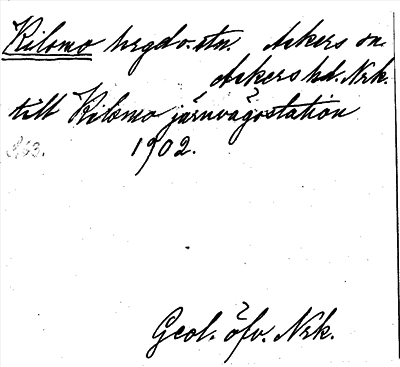 Kilsmo hrgdv. stn. Askers sn.
Askers hd. Nrk.
till Kilsmo järnvägsstation
1902.
Geol. öfv. Nrk.